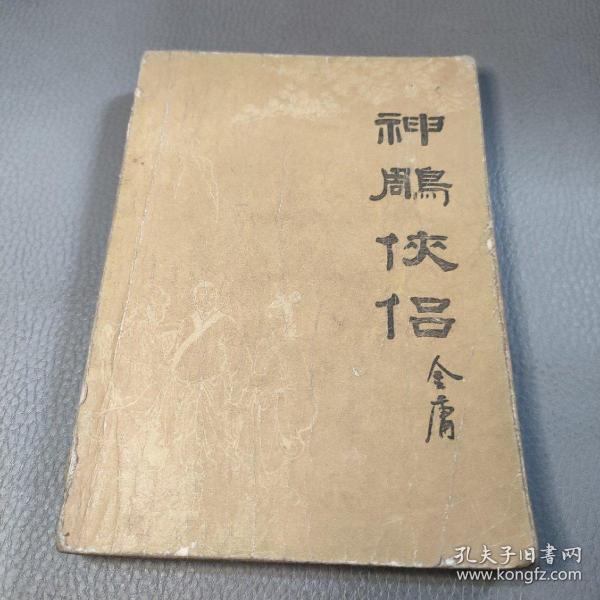 神鵰俠侣
金庸
孔夫子旧書网
www.kongfz.com